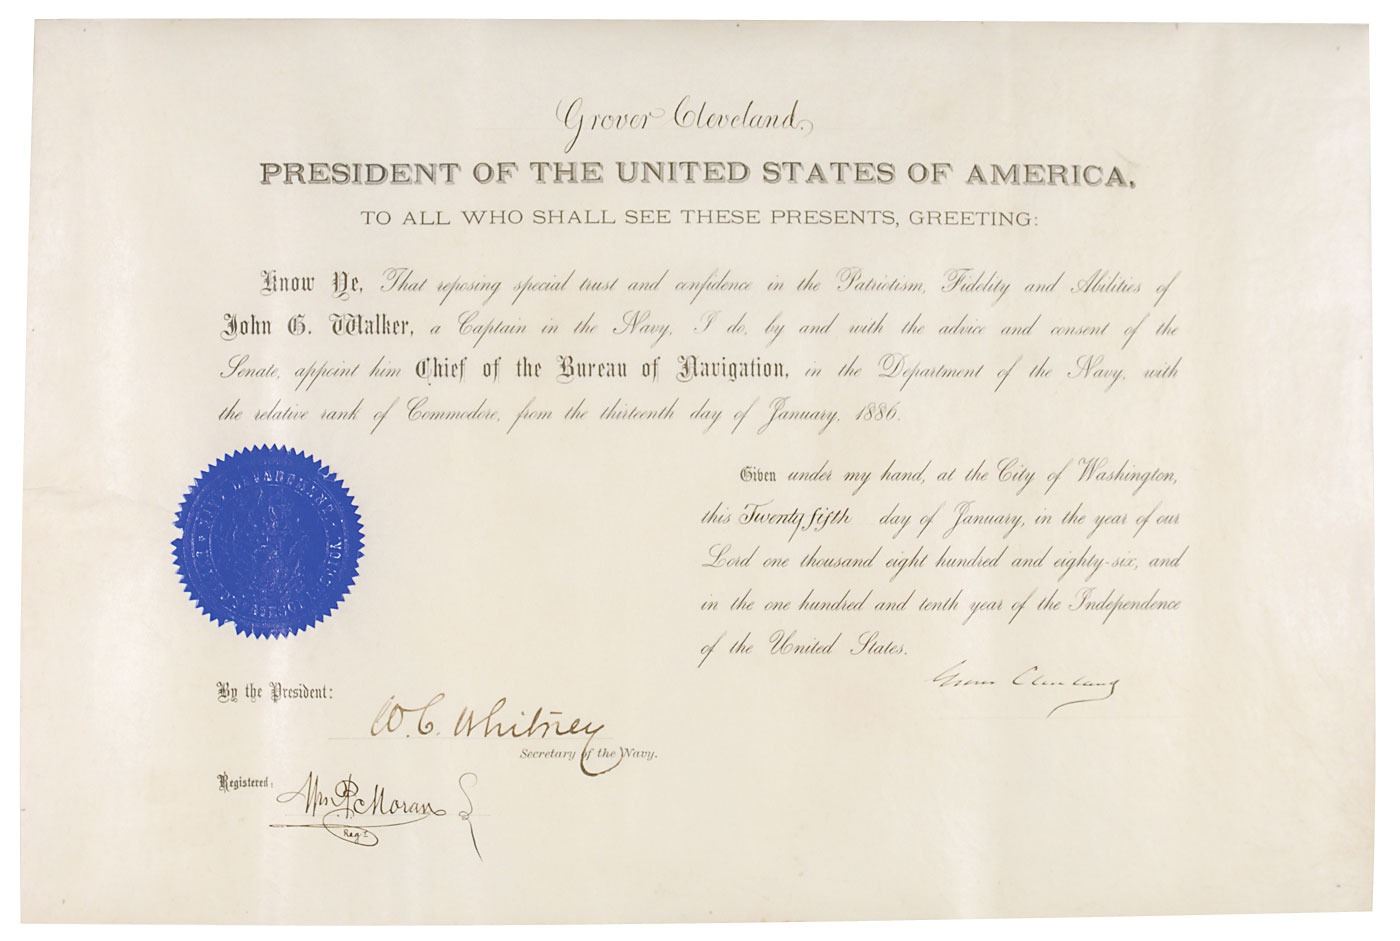 Grover Cleveland.
PRESIDENT OF THE UNITED STATES OF AMERICA,
TO ALL WHO SHALL SEE THESE PRESENTS, GREETING:
Know Ye, That reposing special trust and confidence in the Patriotism, Fidelity and Abilities of
John G. Walker, a Captain in the Navy, I do, by and with the advice and consent of the
Senate, appoint him Chief of the Bureau of Navigation, in the Department of the Navy, with
the relative rank of Commodore, from the thirteenth day of January, 1886.
Given under my hand, at the City of Washington,
this Twenty fifth day of January, in the year of our
Lord one thousand eight hundred and eighty-six, and
in the one hundred and tenth year of the Independence
of the United States.
Grover Cleveland
By the President:
W. C. Whitney
Secretary of the Navy.
Registered:
Moran
Regr